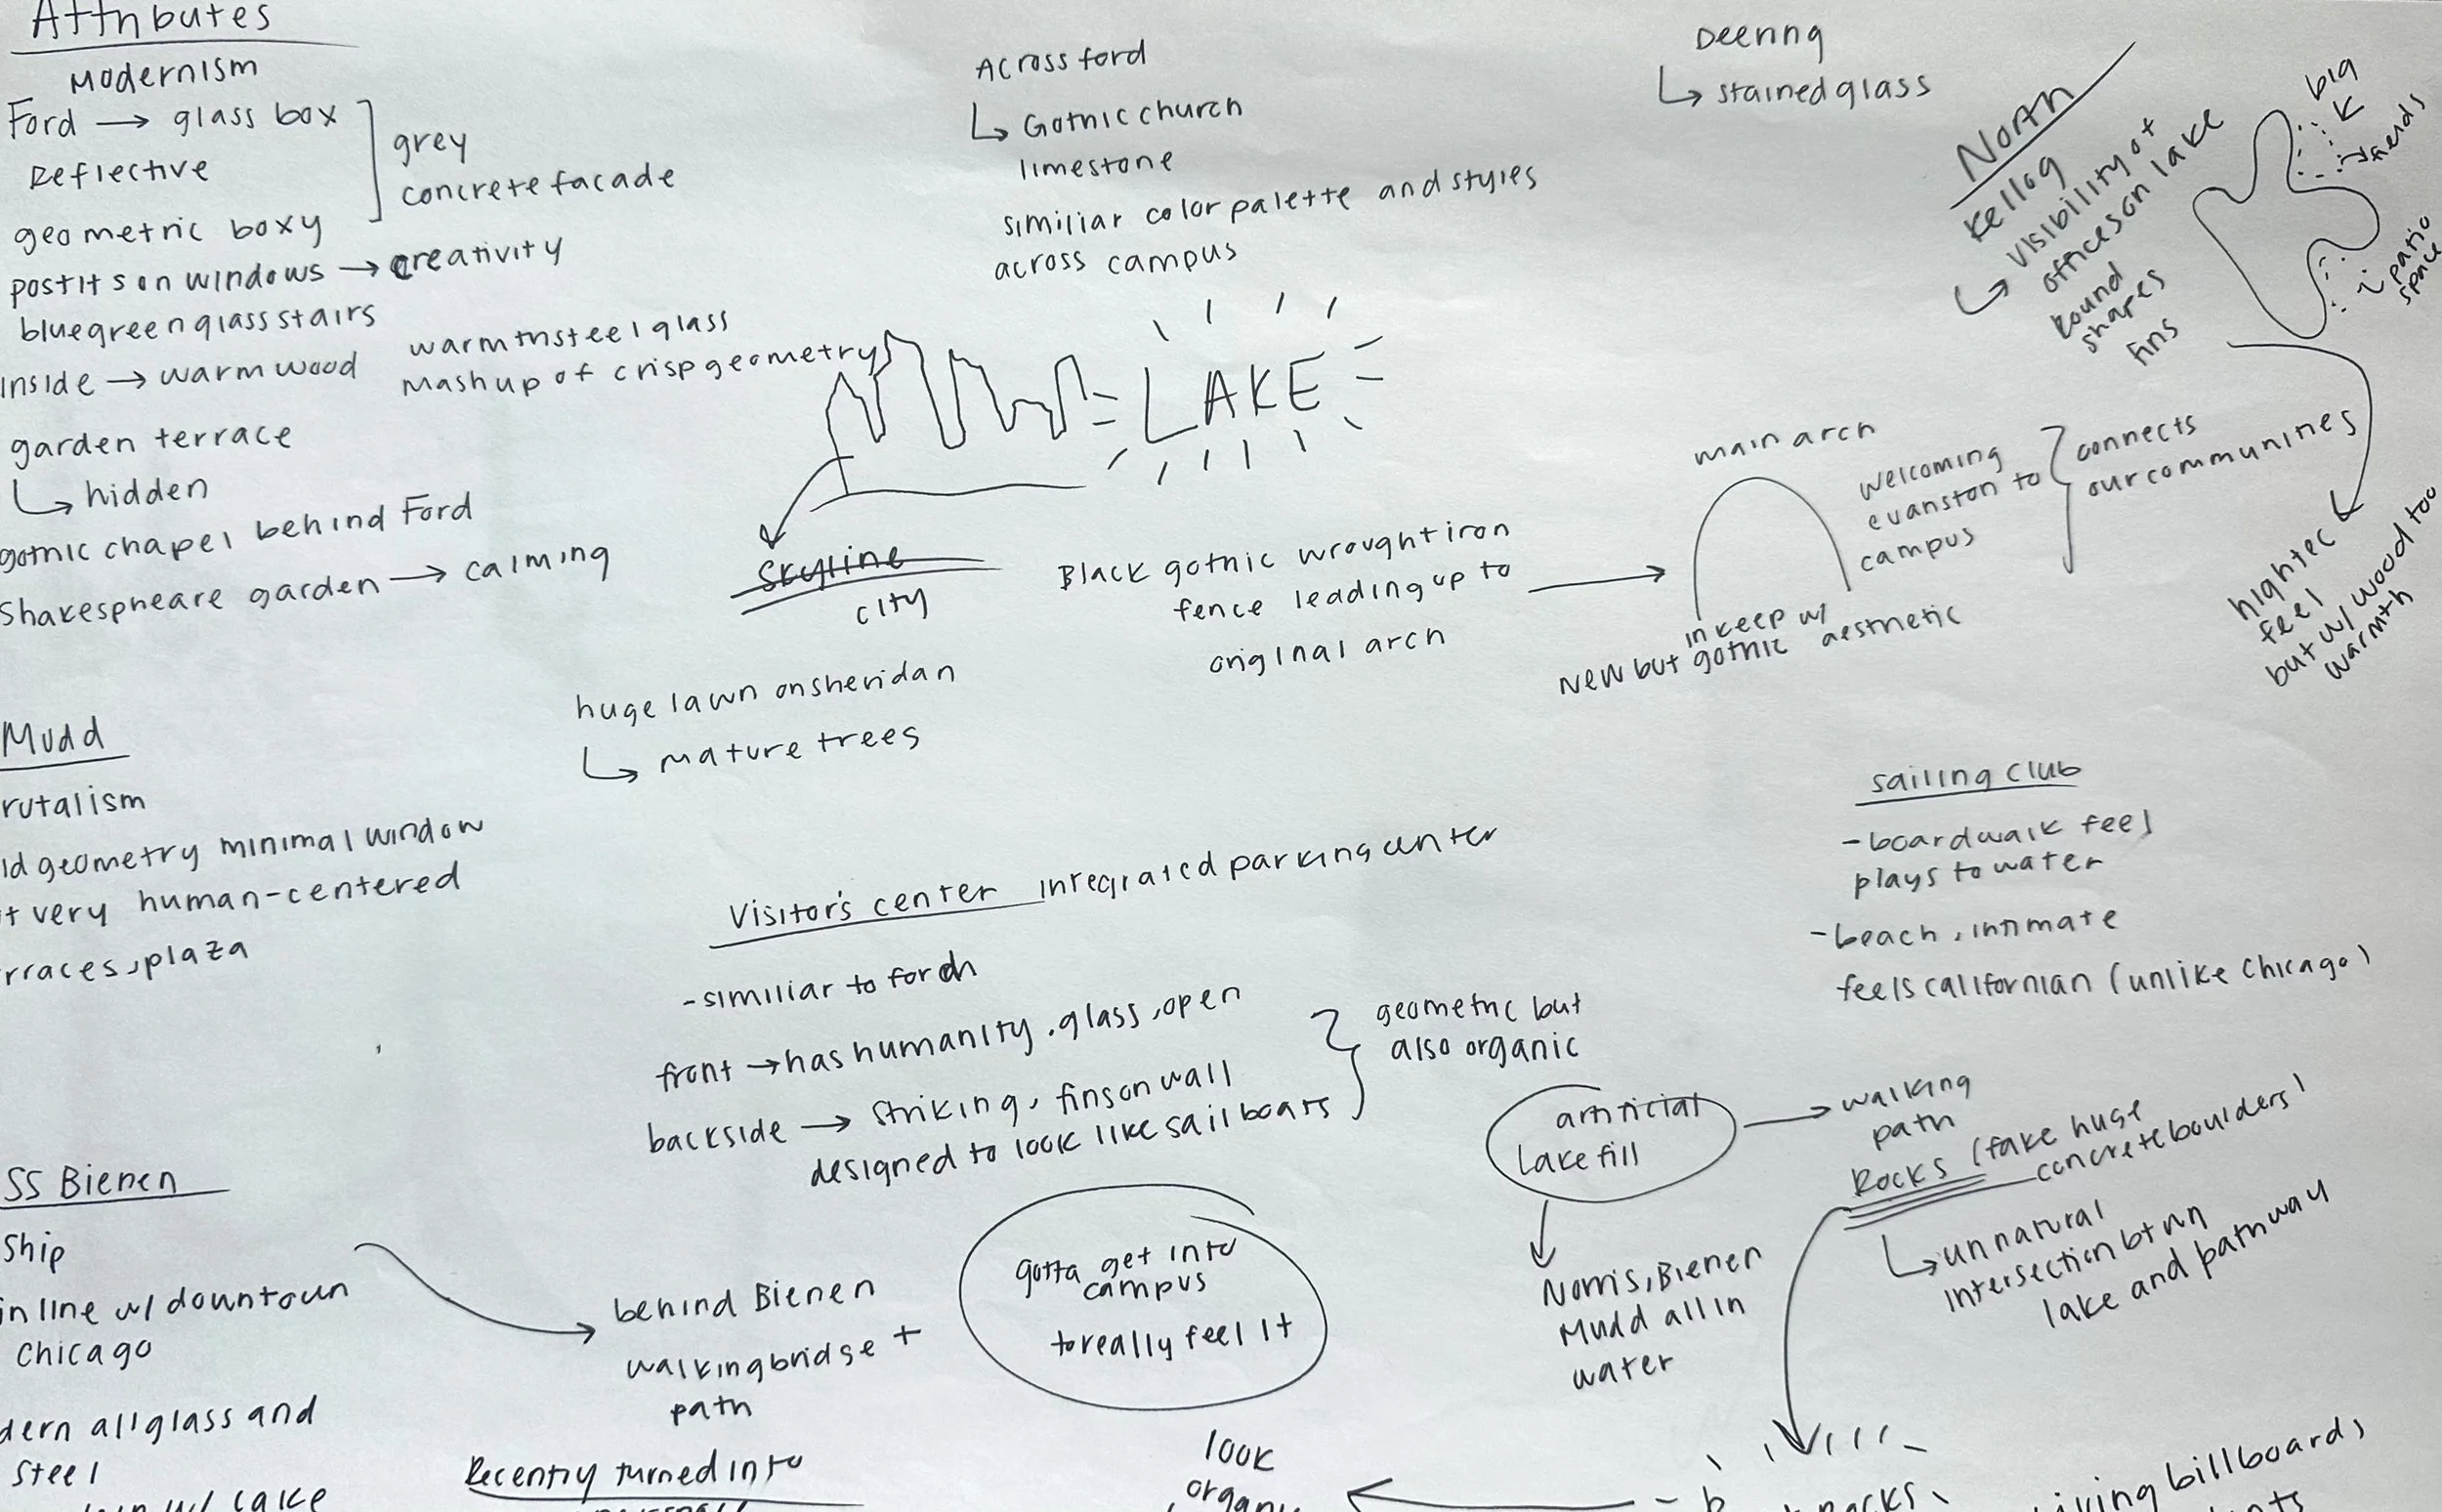 Attributes
Modernism
Ford → glass box
Reflective
geometric boxy
grey
concrete facade
postits on windows → creativity
bluegreen glass stairs
inside → warm wood
warmth steel glass
mashup of crisp geometry
garden terrace
↳ hidden
gothic chapel behind Ford
Shakespheare garden → calming
Across ford
↳ Gothic church
limestone
similiar color palette and styles
across campus
Deering
↳ stained glass
LAKE
skyline
city
North
Kellog
↳ visibility of
offices on lake
round
shapes
fins
big
K
fields
patio
space
hightec
feel
but w/ wood too
warmth
Black gothic wrought iron
fence leading up to
original arch
main arch
welcoming
evanston to
campus
connects
our communities
in keep w/
new but gothic aesthetic
huge lawn on sheridan
↳ mature trees
Mudd
rutalism
ld geometry minimal window
t very human-centered
rraces, plaza
Visitor's center integrated parking center
- similiar to ford
front → has humanity, glass, open
backside → striking, fins on wall
designed to look like sailboats
geometric but
also organic
sailing club
- boardwalk feel
plays to water
- beach, intimate
feels californian (unlike chicago)
artificial
Lake fill
→ walking
path
Rocks (fake huge
concrete boulders)
↳ unnatural
intersection btwn
lake and pathway
Norris, Bienen
Mudd all in
water
SS Bienen
Ship
in line w/ downtown
Chicago
dern all glass and
steel
w/ lake
behind Bienen
walking bridge +
path
gotta get into
campus
to really feel it
Recently turned into
look
organ
billboards,